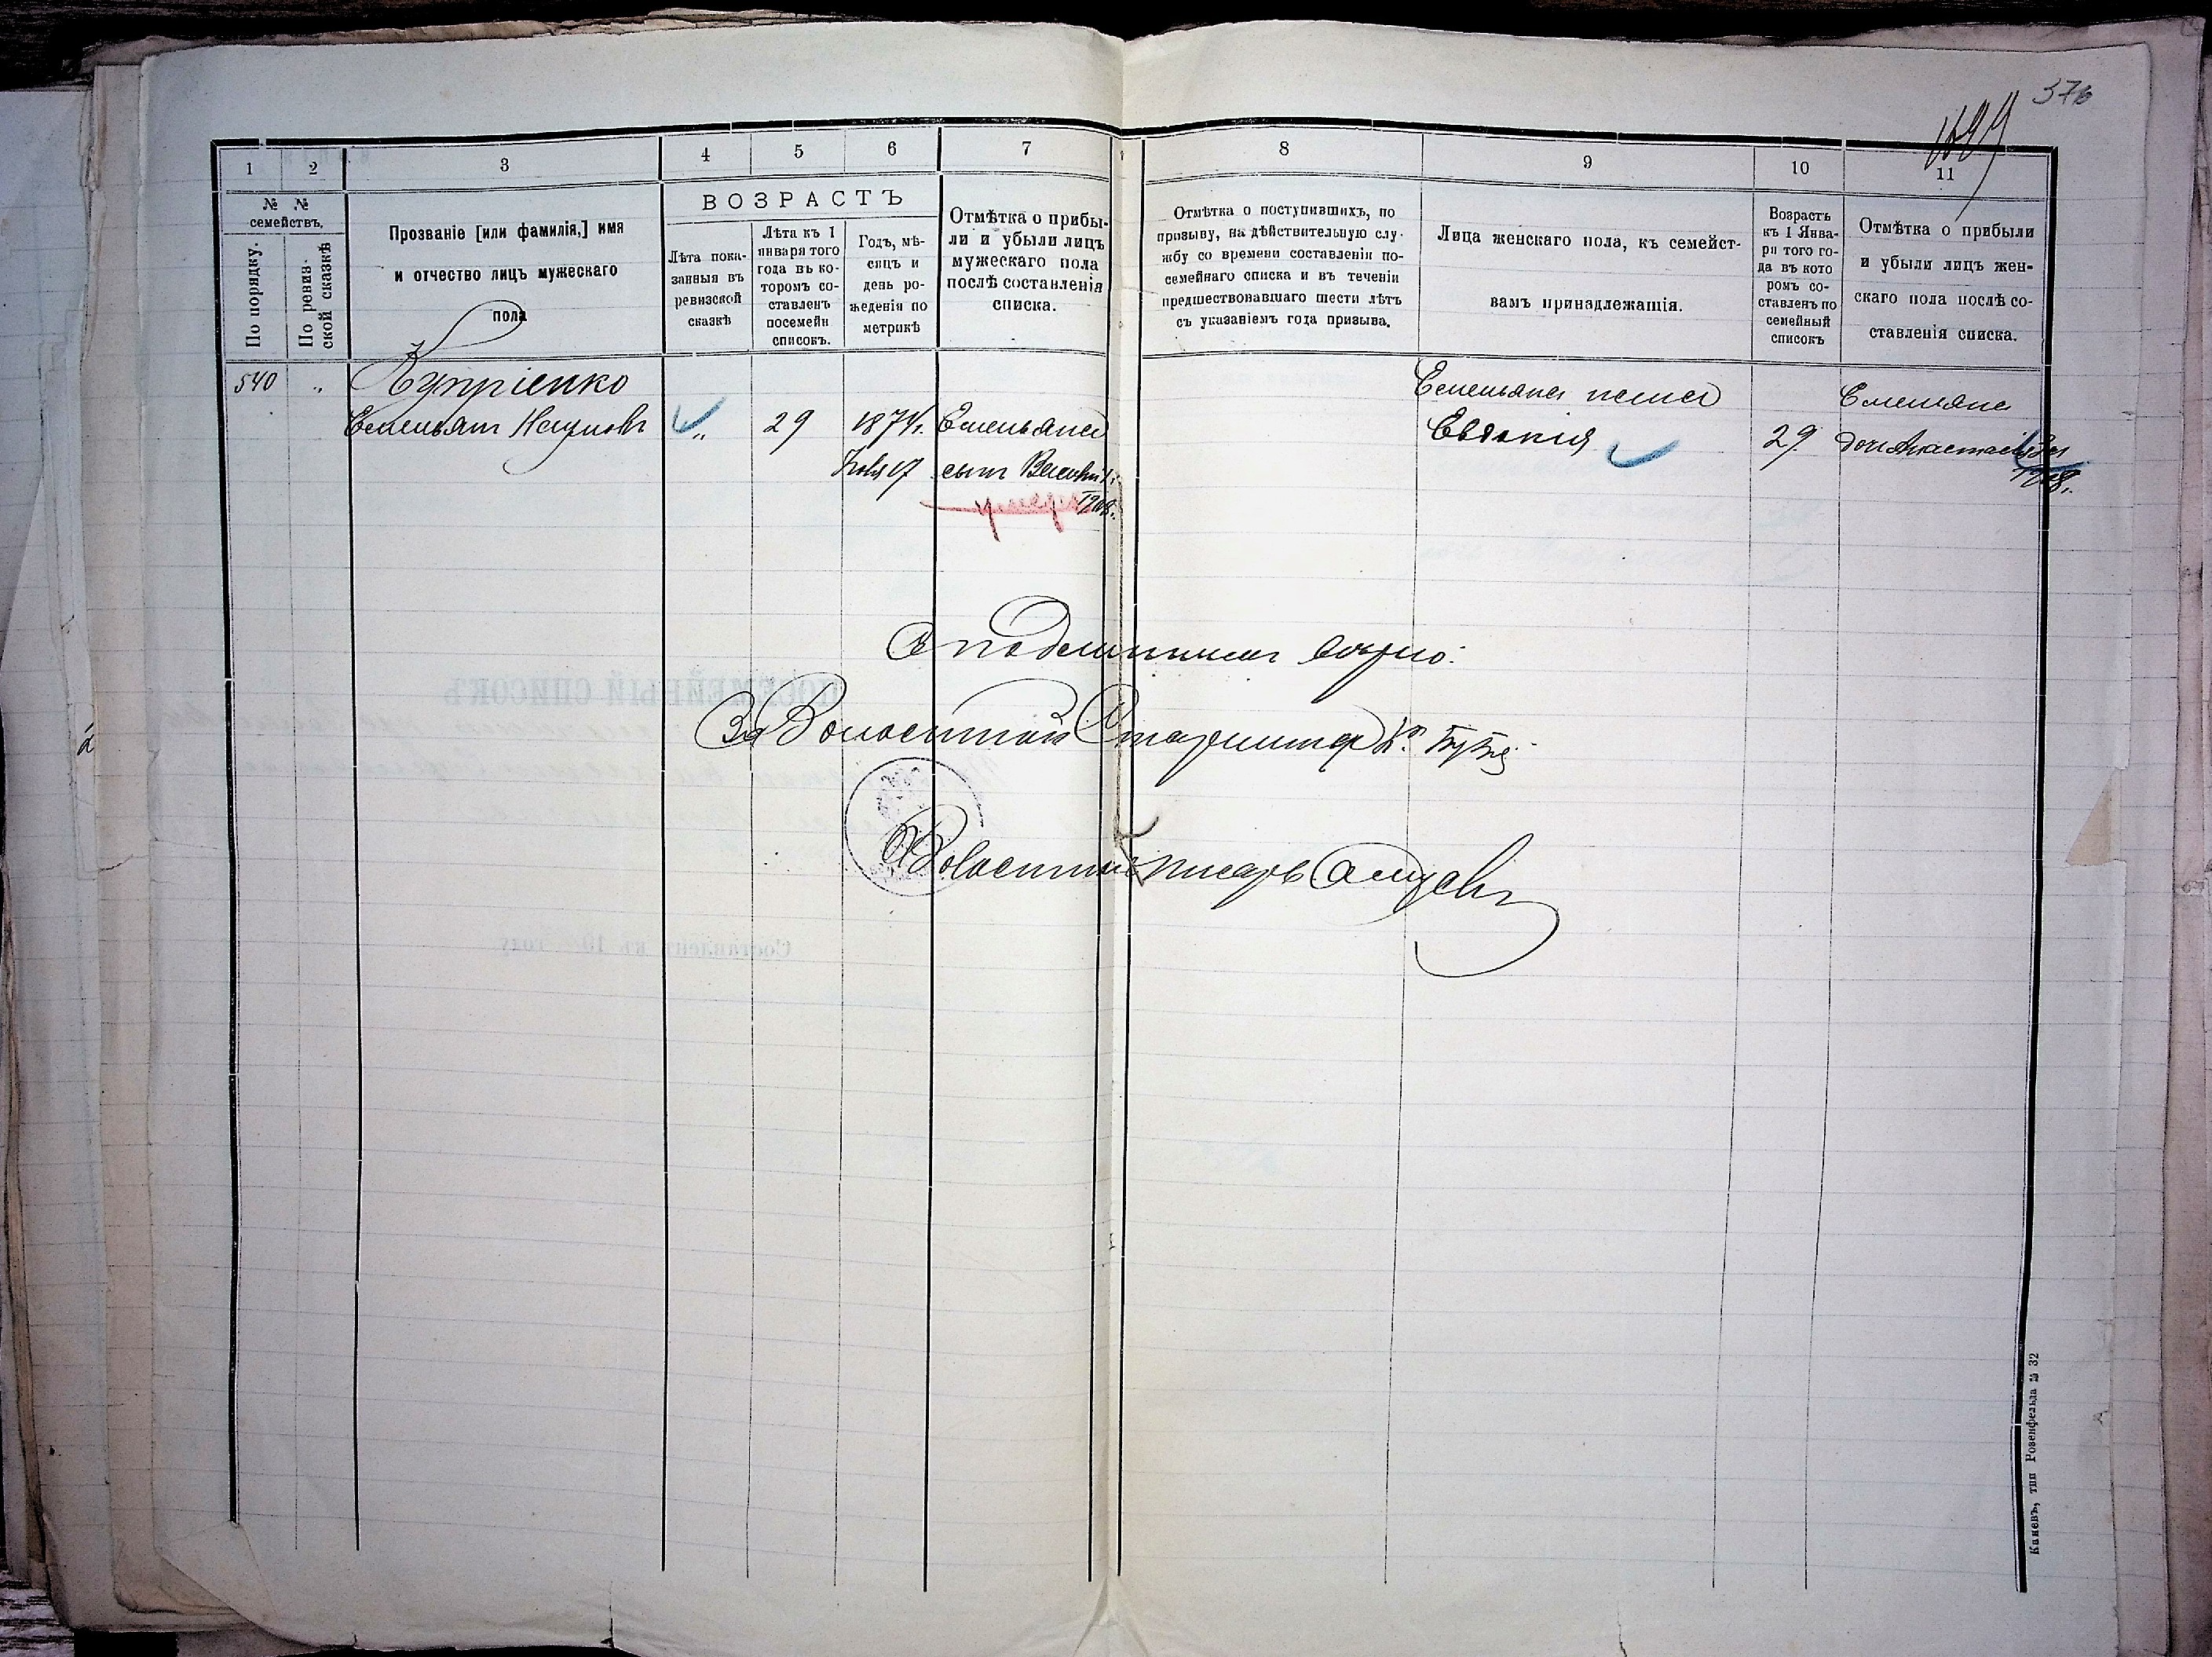 376
1 2 3 4 5 6 7 8 9 10 11
№ № семействъ.
По порядку.
По ревиз-
ской сказкѣ
Прозваніе [или фамилія,] имя
и отчество лицъ мужескаго
пола
ВОЗРАСТЪ
Лѣта пока-
занныя въ
ревизской
сказкѣ
Лѣта къ 1
января того
года въ ко-
торомъ со-
ставленъ
посемейн
списокъ.
Годъ, мѣ-
сяцъ и
день ро-
жденія по
метрикѣ
Отмѣтка о прибы-
ли и убыли лицъ
мужескаго пола
послѣ составленія
списка.
Отмѣтка о поступившихъ, по
призыву, на дѣйствительную слу-
жбу со времени составленія по-
семейнаго списка и въ теченіи
предшествовавшаго шести лѣтъ
съ указаніемъ года призыва.
Лица женскаго пола, къ семейст-
вамъ принадлежащія.
Возрастъ
къ 1 Янва-
ря того го-
да въ кото
ромъ со-
ставленъ по
семейный
списокъ
Отмѣтка о прибыли
и убыли лицъ жен-
скаго пола послѣ со-
ставленія списка.
540 " Купріенко
Емельянъ Наумовъ " 29 1874г.
Емельяна
сынъ
Емельяна жена
Евдокія 29
Емельяна
дочь Анастасія
1908г.
Съ подлиннымъ вѣрно:
За Волостной Старшина
Волостной писарь
ПОСЕМЕЙНЫЙ СПИСОКЪ
Составленъ къ 19 году
Каневъ, тип Розенфельда № 32